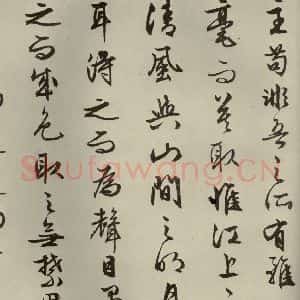 主苟非吾之所有雖
毫而莫取惟江上之
清風與山間之明月
耳得之而為聲目遇
之而成色取之無禁用
Shufawang.CN